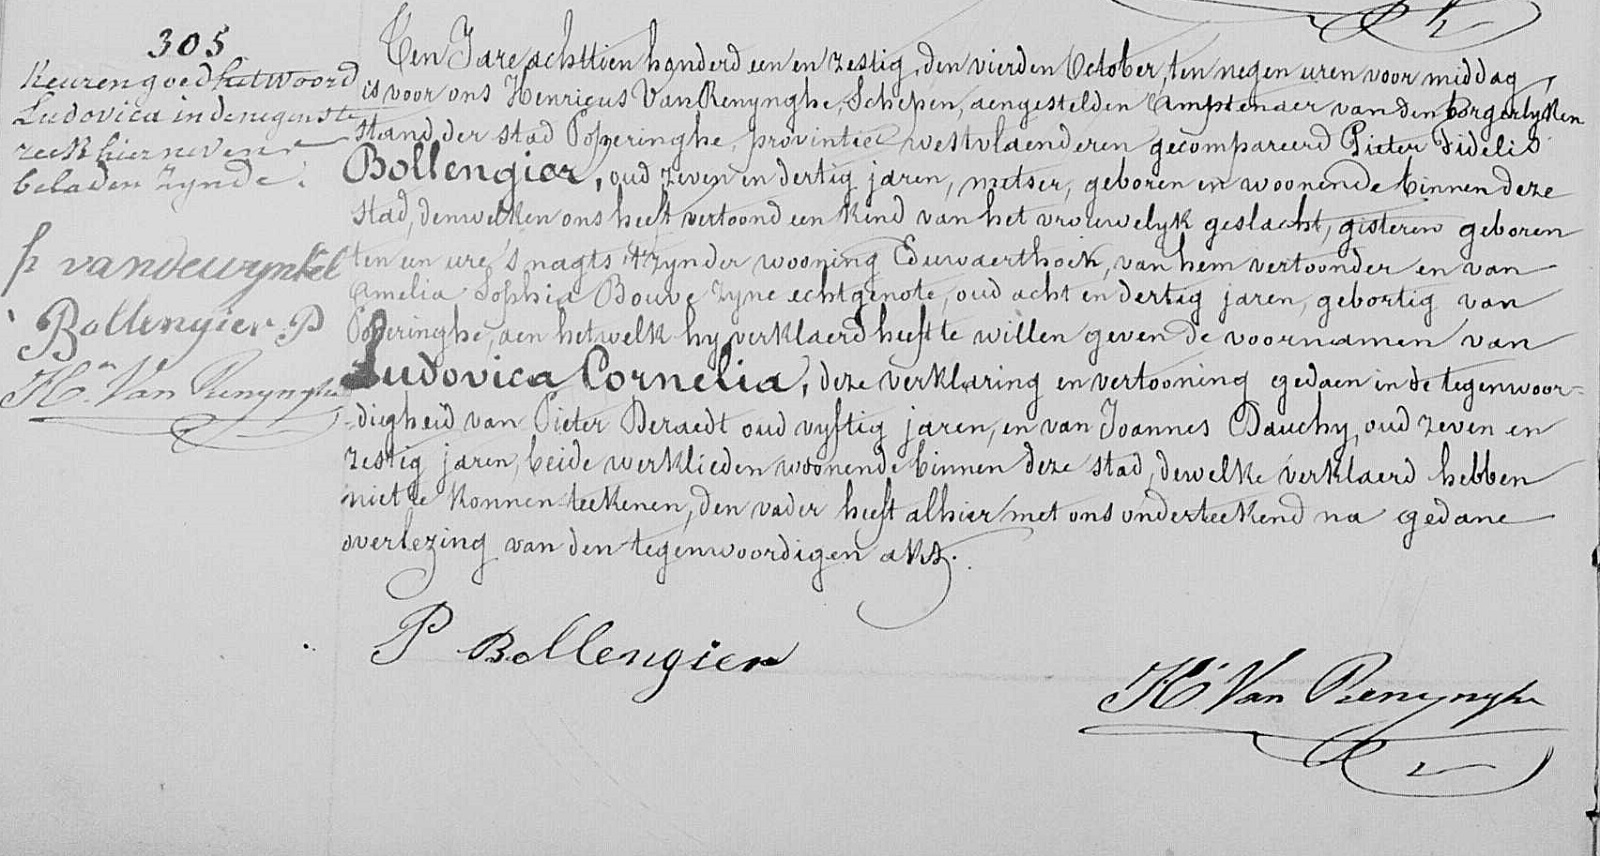 305
Keuren goed het woord
Ludovica in de negenste
reek hier nevens
beladen zynde.
P vandewynkel
Bollengier P
Hri Van Renynghe
Ten Jare achttien honderd een en zestig, den vierden October, ten negen uren voor middag,
is voor ons Henricus Van Renynghe, Schepen, aengestelden Amptenaer van den borgerlyken
stand, der stad Poperinghe, provintie westvlaenderen gecompareerd Pieter Fidelis
Bollengier, oud zeven en dertig jaren, metser, geboren en woonende binnen deze
stad, denwelken ons heeft vertoond een kind van het vrouwelyk geslacht, gisteren geboren
ten een ure 's nagts 't zynder wooning Eduwaerthoek, van hem vertoonder en van
Amelia Sophia Bouve zyne echtgenote, oud acht en dertig jaren, gebortig van
Poperinghe, aen hetwelk hy verklaerd heeft te willen geven de voornamen van
Ludovica Cornelia, deze verklaring en vertooning gedaen in de tegenwoor-
-digheid van Pieter Deraedt oud vyftig jaren, en van Joannes Dauchy, oud zeven en
zestig jaren, beide werklieden woonende binnen deze stad, dewelke verklaerd hebben
niet te konnen teekenen, den vader heeft alhier met ons onderteekend na gedane
overlezing van den tegenwoordigen akt.
P Bollengier
Hri Van Renynghe